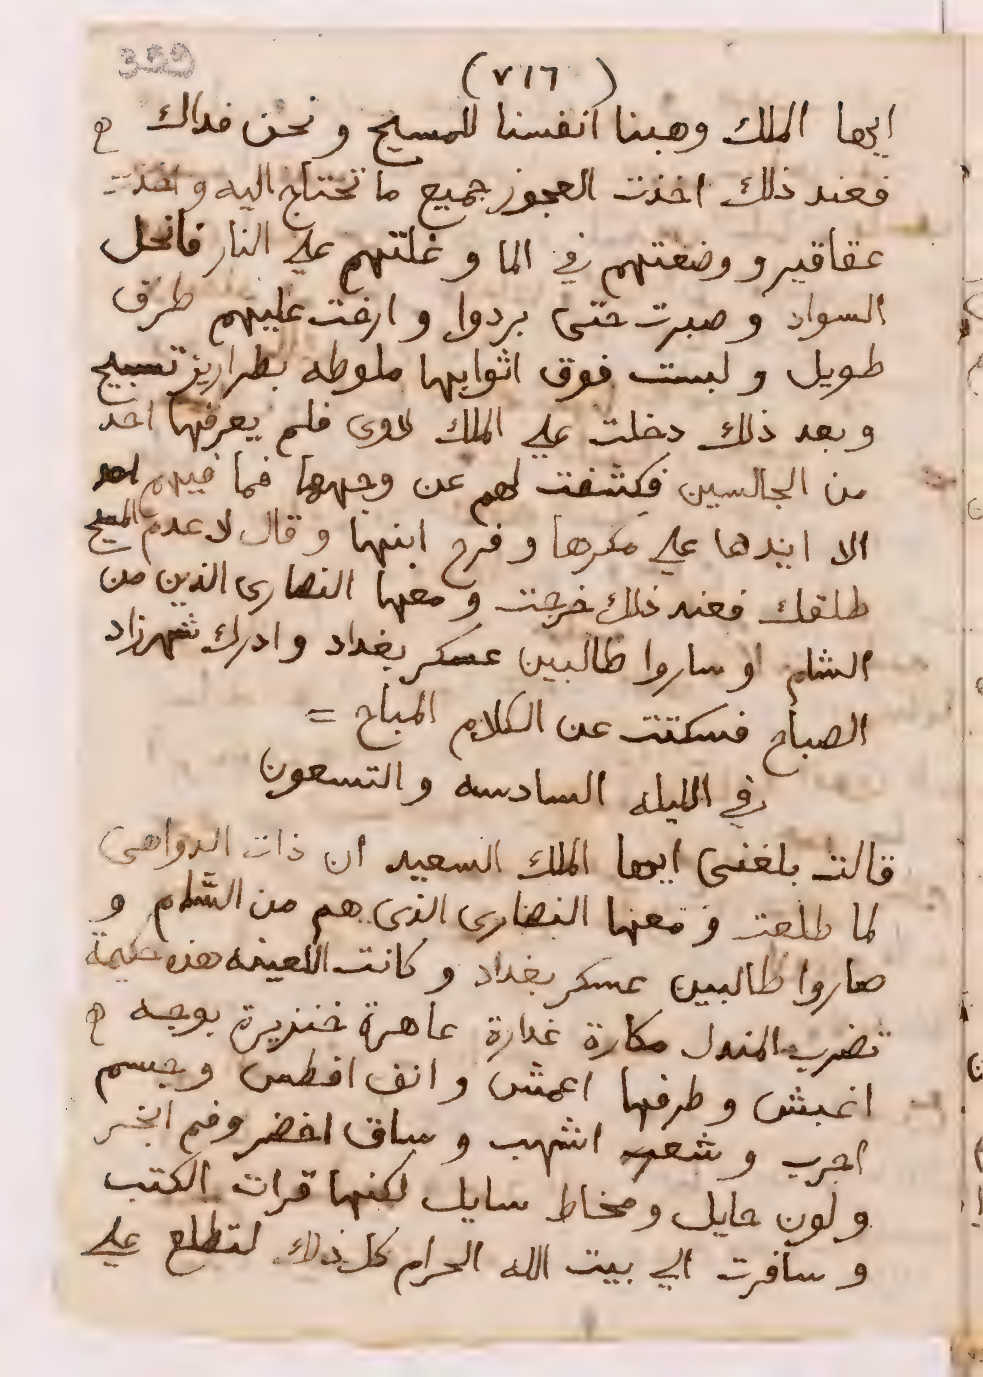 399
(٧١٦)
ايها الملك وهبنا انفسنا للمسيح و نحن فداك
فعند ذلك اخذت العجوز جميع ما تحتاج اليه و اخذت
عقاقير و وضعتهم في الما و غلتهم علي النار فانحل
السواد و صبرت حتى بردوا و ارخت عليهم طرف
طويل و لبست فوق اثوابها ملوطه بطراريز تسبيح
و بعد ذلك دخلت علي الملك لاوى فلم يعرفها احد
من الجالسين فكشفت لهم عن وجهها فما فيهم احد
الا ايدها علي مكرها و فرح ابنها و قال لا عدم المسيح
طلقك فعند ذلك خرجت و معها النصارى الذين من
الشام او ساروا طالبين عسكر بغداد و ادرك شهرزاد
الصباح فسكتت عن الكلام المباح =
في الليله السادسه و التسعون
قالت بلغنى ايها الملك السعيد ان ذات الدواهى
لما طلعت و معها النصارى الذى هم من الشام و
صاروا طالبين عسكر بغداد و كانت اللعينه هذه حكيمة
تضرب المندل مكارة غدارة عاهرة خنزيرة بوجه
اغبش و طرفها اعمش و انف افطس و جسم
اجرب و شعر اشهب و ساق اخضر و فم ابخر
و لون حايل و مخاط سايل لكنها قرات الكتب
و سافرت الي بيت الله الحرام كل ذلك لتطلع علي